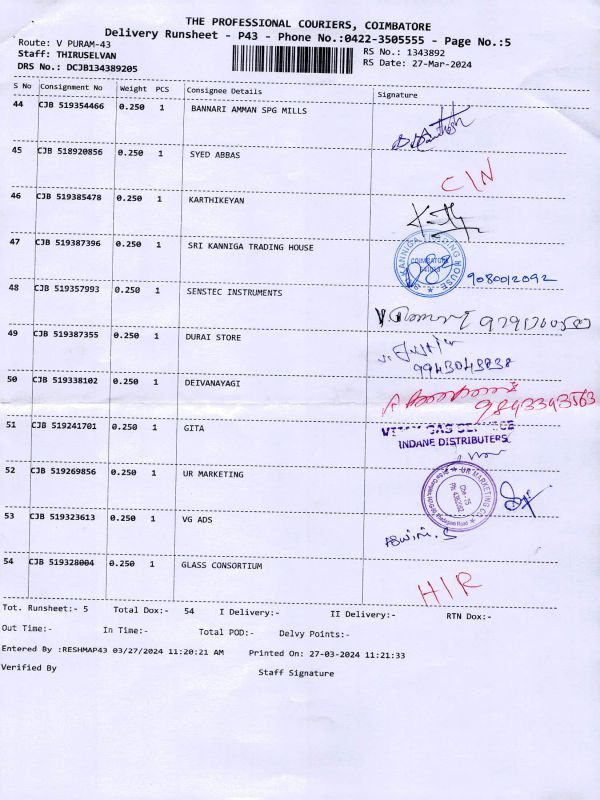 THE PROFESSIONAL COURIERS, COIMBATORE
Delivery Runsheet - P43 - Phone No.:0422-3505555 - Page No.:5
Route: V PURAM-43
RS No.: 1343892
Staff: THIRUSELVAN
RS Date: 27-Mar-2024
DRS No.: DCJB134389205
S No Consignment No Weight PCS Consignee Details Signature
44 CJB 519354466 0.250 1 BANNARI AMMAN SPG MILLS
45 CJB 518920856 0.250 1 SYED ABBAS C/N
46 CJB 519385478 0.250 1 KARTHIKEYAN
47 CJB 519387396 0.250 1 SRI KANNIGA TRADING HOUSE
KANNIGA TRADING HOUSE
COIMBATORE
9080012092
48 CJB 519357993 0.250 1 SENSTEC INSTRUMENTS
49 CJB 519387355 0.250 1 DURAI STORE
9943043838
50 CJB 519338102 0.250 1 DEIVANAYAGI
9843393563
51 CJB 519241701 0.250 1 GITA
INDANE DISTRIBUTERS
52 CJB 519269856 0.250 1 UR MARKETING
UR MARKETING CO
53 CJB 519323613 0.250 1 VG ADS
54 CJB 519328004 0.250 1 GLASS CONSORTIUM H/R
Tot. Runsheet:- 5 Total Dox:- 54 I Delivery:- II Delivery:- RTN Dox:-
Out Time:- In Time:- Total POD:- Delvy Points:-
Entered By :RESHMAP43 03/27/2024 11:20:21 AM Printed On: 27-03-2024 11:21:33
Verified By Staff Signature